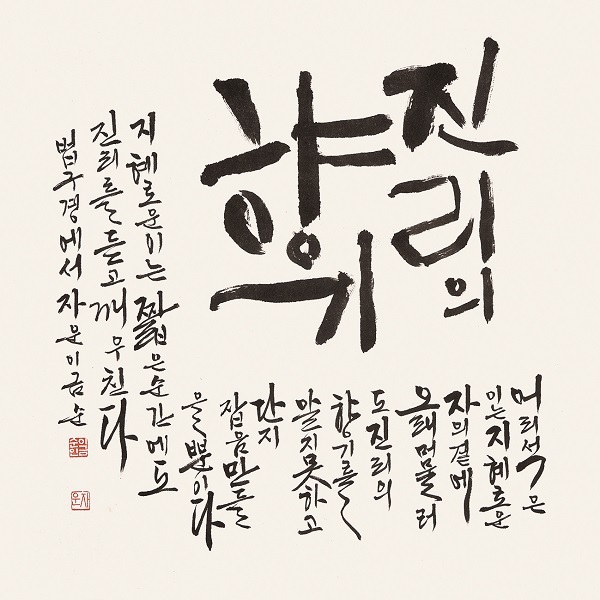 진리의
향기
어리석은
이는지혜로운
자의곁에
오래머물러
도진리의
향기를
알지못하고
단지
잡음만들
을뿐이다
지혜로운이는짧은순간에도
진리를듣고깨우친다
법구경에서자운이금순